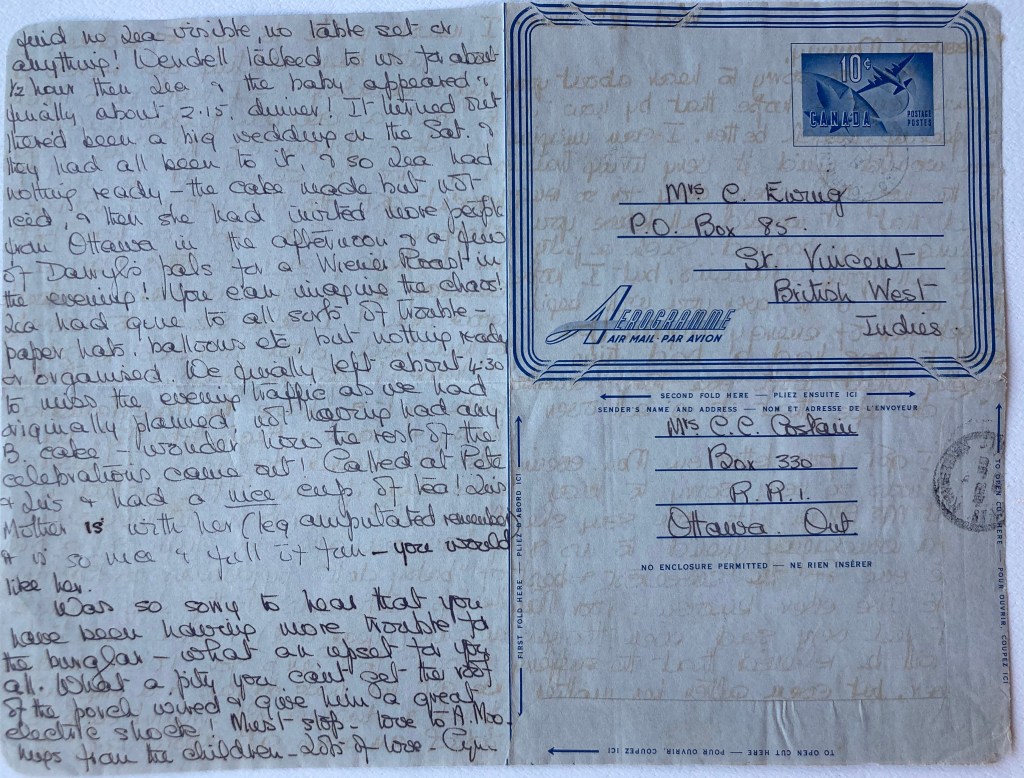 no visible, no table set or
anything! Wendell talked to us for about
1/2 hour then & the baby appeared &
finally about 2.15 dinner! It turned out
there'd been a big wedding on the Sat. &
they had all been to it, & so had
nothing ready – the cake made but not
iced, & then she had invited more people
from Ottawa in the afternoon & a few
of Darryl's pals for a Wiener Roast in
the evening! You can imagine the chaos!
had gone to all sorts of trouble –
paper hats, balloons etc, but nothing ready
or organised. We finally left about 4.30
to miss the evening traffic as we had
originally planned, not having had any
B. cake – wonder how the rest of the
celebrations came out! Called at Pete
& & had a nice cup of tea!
Mother is with her (leg amputated remember)
& is so nice & full of fun – you would
like her.
Was so sorry to hear that you
have been having more trouble for
the burglar – what an upset for you
all. What a pity you can't get the roof
of the porch wired & give him a great
electric shock! Must stop – love to A. Moo –
from the children – Lots of love –
10¢
CANADA
POSTAGE
POSTES
Mrs C. Ewing
P.O. Box 85.
St. Vincent
British West
Indies.
AEROGRAMME
AIR MAIL · PAR AVION
SECOND FOLD HERE — PLIEZ ENSUITE ICI
SENDER'S NAME AND ADDRESS — NOM ET ADRESSE DE L'ENVOYEUR
Mrs C.C. Costain
Box 330
R.R.1.
Ottawa. Ont
NO ENCLOSURE PERMITTED — NE RIEN INSÉRER
FIRST FOLD HERE — PLIEZ D'ABORD ICI
TO OPEN CUT HERE — POUR OUVRIR, COUPEZ ICI
TO OPEN CUT HERE — POUR OUVRIR, COUPEZ ICI